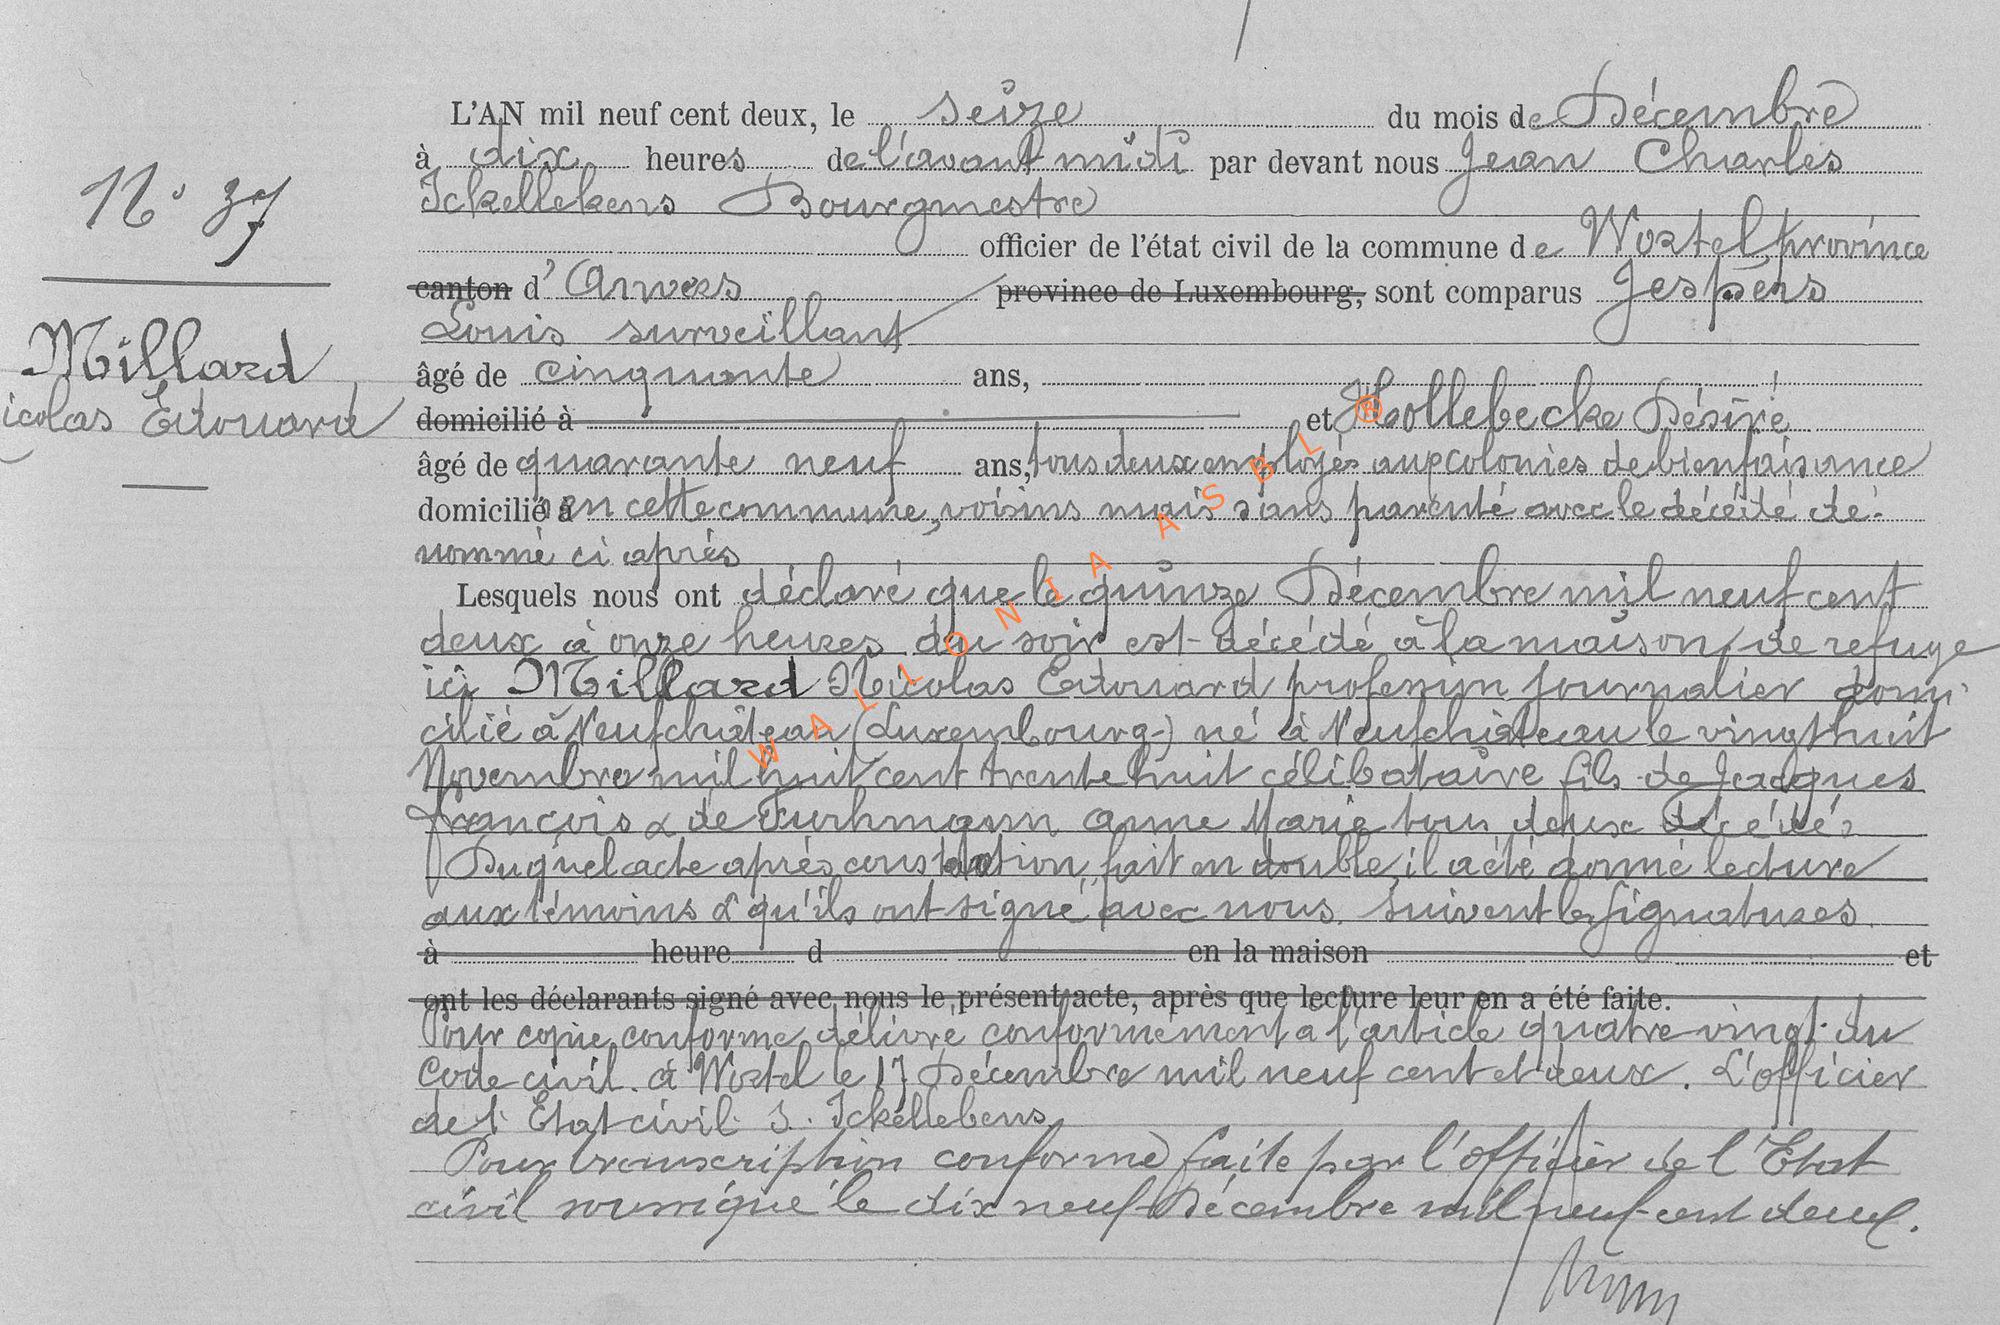 N° 37
Millard
icolas Edouard
L'AN mil neuf cent deux, le seize du mois de Décembre
à dix heures de l'avant midi par devant nous Jean Charles
Ickellekens Bourgmestre
officier de l'état civil de la commune de Wortel, province
canton d' Anvers province de Luxembourg, sont comparus Jespers
Louis surveillant
âgé de cinquante ans,
domicilié à et Hollebecke Désiré
âgé de quarante neuf ans, tous deux employés aux colonies de bienfaisance
domicilié à en cette commune, voisins mais sans parenté avec le décédé dé-
nommé ci après
Lesquels nous ont déclaré que le quinze Décembre mil neuf cent
deux à onze heures du soir est décédé à la maison de refuge
ici Millard Nicolas Edouard profession journalier domi-
cilié à Neufchâteau (Luxembourg) né à Neufchâteau le vingt huit
Novembre mil huit cent trente huit célibataire fils de Jacques
françois & de Furhmann anne Marie tous deux décédés
Duquel acte après constatation, fait en double, il a été donné lecture
aux témoins & qu'ils ont signé avec nous. Suivent les signatures.
à heure d en la maison et
ont les déclarants signé avec nous le présent acte, après que lecture leur en a été faite.
Pour copie conforme délivré conformément à l'article quatre vingt du
Code civil. à Wortel le 17 Décembre mil neuf cent et deux. L'officier
de l'Etat civil. J. Ickellebens
Pour transcription conforme faite par l'officier de l'Etat
civil soussigné le dix neuf Décembre mil neuf cent deux.
WALLONIA ASBL ®